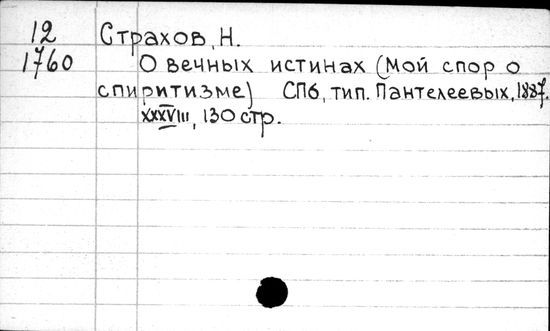 12 Страхов, Н.
1760 О вечных истинах (мой спор о
спиритизме) СПб, тип. Пантелеевых, 1887.
XXXVIII, 130 стр.